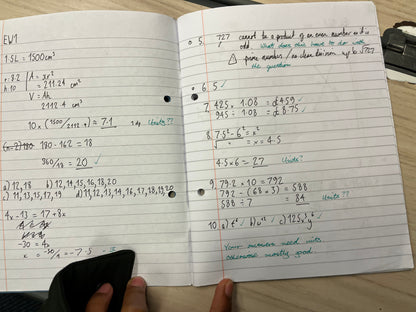 EW1
1.5L = 1500cm³
r: 8.2 A = πr²
h: 10 = 211.24 cm²
V = Ah
2112.4 cm³
10 × (1500/2112.4) = 7.1 1dp Units??
180 - 162 = 18
360/18 = 20 ✓
a) 12, 18 b) 12, 14, 15, 16, 18, 20
c) 11, 13, 15, 17, 19 d) 11, 12, 13, 14, 16, 17, 18, 19, 20
4x - 13 = 17 + 8x
-30 = 4x
x = -30/4 = -7.5
5. 727 cannot be a product of an even number as it is
odd. What does this have to do with
the question
⚠ prime number / no clear divisors up to √727
6. 5 ✓
7. 425 × 1.08 = £459 ✓
945 ÷ 1.08 = £875 ✓
8. 7.5² - 6² = x²
= x = 4.5
4.5 × 6 = 27 Units?
9. 79.2 × 10 = 792
792 - (68 × 3) = 588
588 ÷ 7 = 84 Units??
10. a) t⁶ ✓ b) w¹² ✓ c) 125x³y⁶ ✓
Your answers need units
otherwise mostly good.